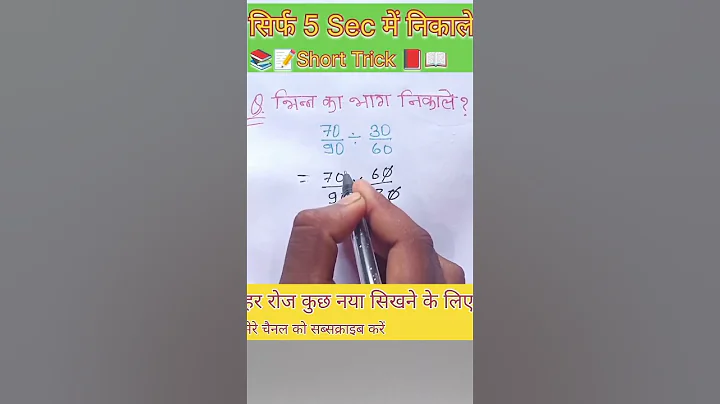 सिर्फ 5 Sec में निकाले
📚📝Short Trick 📕📖
Q. भिन्न का भाग निकाले?
70/90 ÷ 30/60
= 70 60
9
हर रोज कुछ नया सिखने के लिए
मेरे चैनल को सब्सक्राइब करें